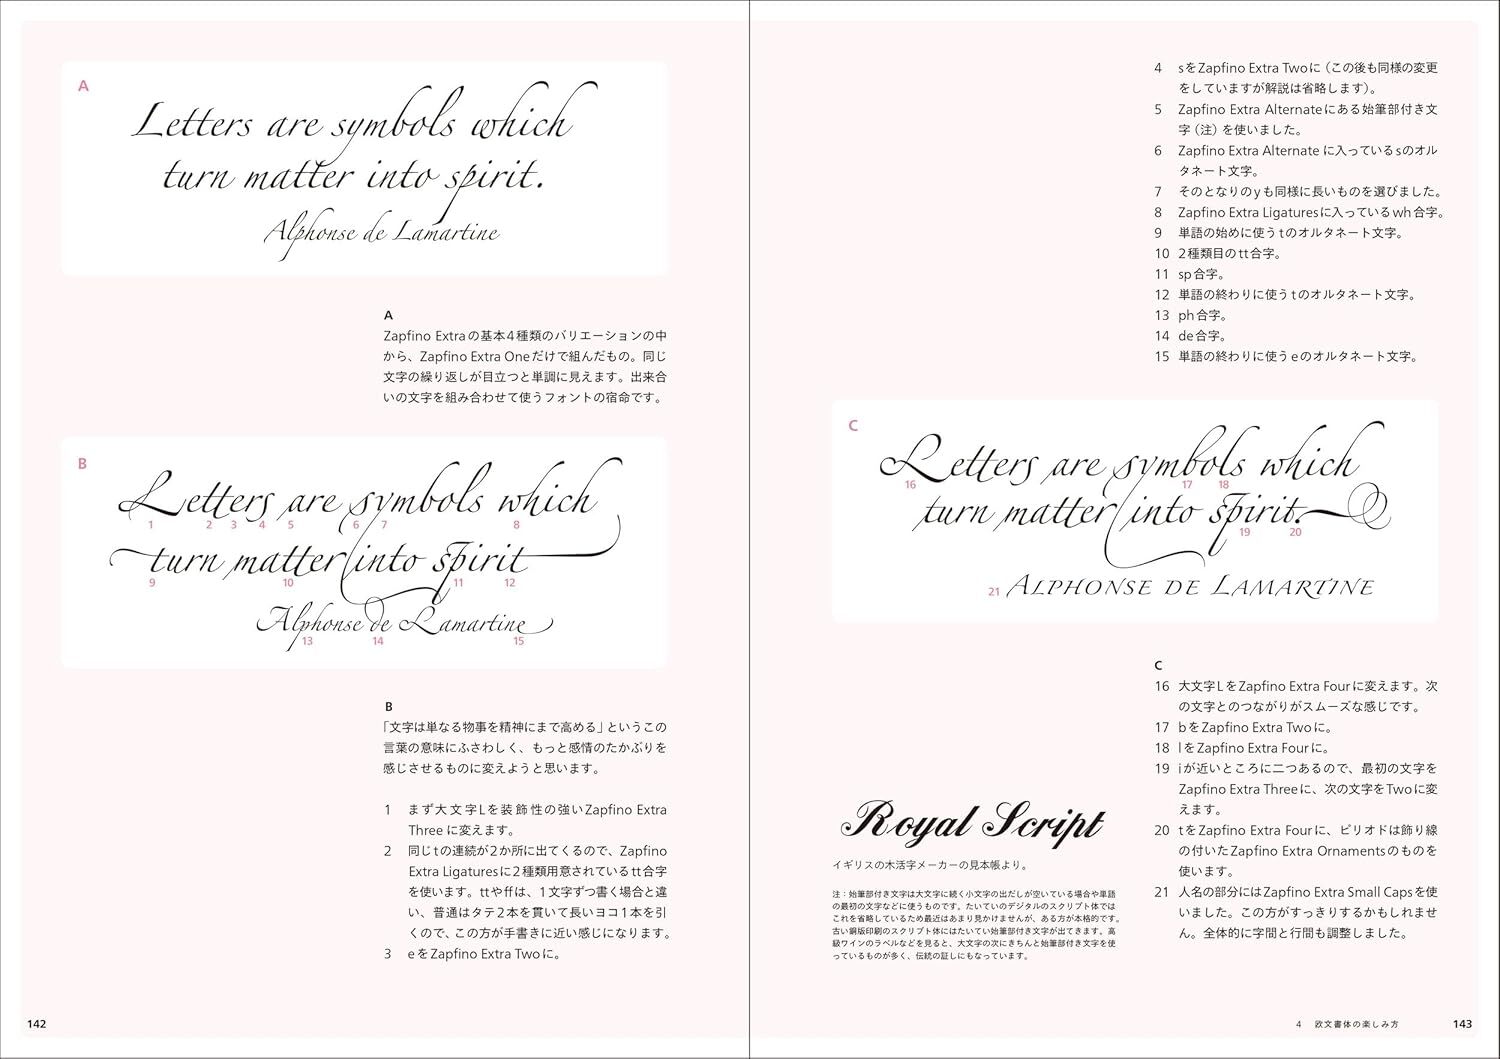 A
Letters are symbols which
turn matter into spirit.
Alphonse de Lamartine
A
Zapfino Extraの基本4種類のバリエーションの中
から、Zapfino Extra Oneだけで組んだもの。同じ
文字の繰り返しが目立つと単調に見えます。出来合
いの文字を組み合わせて使うフォントの宿命です。
B
Letters are symbols which
1 2 3 4 5 6 7 8
turn matter into spirit
9 10 11 12
Alphonse de Lamartine
13 14 15
B
「文字は単なる物事を精神にまで高める」というこの
言葉の意味にふさわしく、もっと感情のたかぶりを
感じさせるものに変えようと思います。
1 まず大文字Lを装飾性の強いZapfino Extra
Three に変えます。
2 同じtの連続が2か所に出てくるので、Zapfino
Extra Ligaturesに2種類用意されているtt合字
を使います。ttやffは、1文字ずつ書く場合と違
い、普通はタテ2本を貫いて長いヨコ1本を引
くので、この方が手書きに近い感じになります。
3 eをZapfino Extra Twoに。
142
4 sをZapfino Extra Twoに（この後も同様の変更
をしていますが解説は省略します）。
5 Zapfino Extra Alternateにある始筆部付き文
字（注）を使いました。
6 Zapfino Extra Alternate に入っているsのオル
タネート文字。
7 そのとなりのyも同様に長いものを選びました。
8 Zapfino Extra Ligaturesに入っているwh合字。
9 単語の始めに使うtのオルタネート文字。
10 2種類目のtt合字。
11 sp合字。
12 単語の終わりに使うtのオルタネート文字。
13 ph合字。
14 de合字。
15 単語の終わりに使うeのオルタネート文字。
C
Letters are symbols which
16 17 18
turn matter into spirit.
19 20
21 ALPHONSE DE LAMARTINE
C
16 大文字LをZapfino Extra Fourに変えます。次
の文字とのつながりがスムーズな感じです。
17 bをZapfino Extra Twoに。
18 lをZapfino Extra Fourに。
19 iが近いところに二つあるので、最初の文字を
Zapfino Extra Threeに、次の文字をTwoに変
えます。
20 tをZapfino Extra Fourに、ピリオドは飾り線
の付いたZapfino Extra Ornamentsのものを
使います。
21 人名の部分にはZapfino Extra Small Capsを使
いました。この方がすっきりするかもしれませ
ん。全体的に字間と行間も調整しました。
Royal Script
イギリスの木活字メーカーの見本帳より。
注：始筆部付き文字は大文字に続く小文字の出だしが空いている場合や単語
の最初の文字などに使うものです。たいていのデジタルのスクリプト体では
これを省略しているため最近はあまり見かけませんが、ある方が本格的です。
古い銅版印刷のスクリプト体にはたいてい始筆部付き文字が出てきます。高
級ワインのラベルなどを見ると、大文字の次にきちんと始筆部付き文字を使
っているものが多く、伝統の証しにもなっています。
4 欧文書体の楽しみ方
143